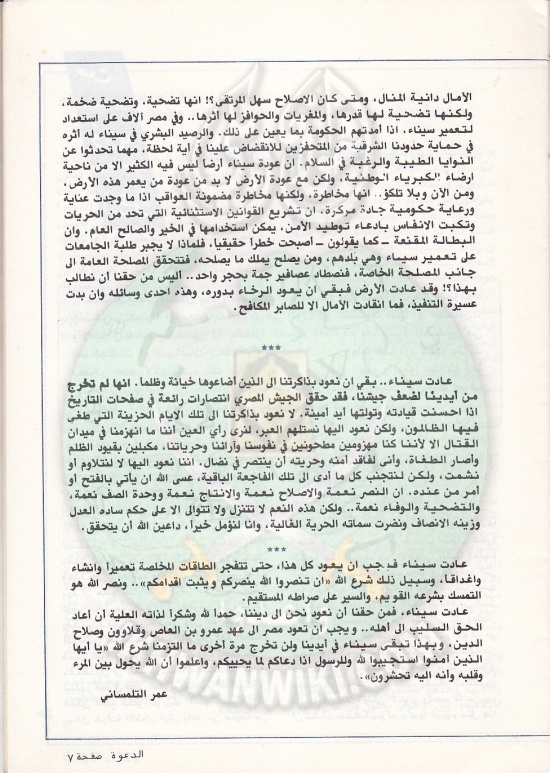 الآمال دانية المنال، ومتى كان الاصلاح سهل المرتقى؟! انها تضحية، وتضحية ضخمة،
ولكنها تضحية لها قدرها، والمغريات والحوافز لها أثرها.. وفي مصر آلاف على استعداد
لتعمير سيناء، اذا امدتهم الحكومة بما يعين على ذلك. والرصيد البشري في سيناء له أثره
في حماية حدودنا الشرقية من المتحفزين للانقضاض علينا في أية لحظة، مهما تحدثوا عن
النوايا الطيبة والرغبة في السلام. ان عودة سيناء أرضا ليس فيه الكثير الا من ناحية
ارضاء الكبرياء الوطنية، ولكن مع عودة الأرض لا بد من عودة من يعمر هذه الأرض،
ومن الآن وبلا تلكؤ.. انها مخاطرة، ولكنها مخاطرة مضمونة العواقب اذا ما وجدت عناية
ورعاية حكومية جادة مركزة. ان تشريع القوانين الاستثنائية التي تحد من الحريات
وتكبت الانفاس بادعاء توطيد الأمن، يمكن استخدامها في الخير والصالح العام. وان
البطالة المقنعة ــ كما يقولون ــ أصبحت خطراً حقيقياً، فلماذا لا يجبر طلبة الجامعات
على تعمير سيناء وهي بلدهم، ومن يصلح يملك ما يصلحه، فتتحقق المصلحة العامة الى
جانب المصلحة الخاصة، فنصطاد عصافير جمة بحجر واحد.. أليس من حقنا أن نطالب
بهذا؟! وقد عادت الأرض فبقي ان يعود الرخاء بدوره، وهذه احدى وسائله وان بدت
عسيرة التنفيذ، فما انقادت الآمال الا للصابر المكافح.
***
عادت سيناء.. بقي ان نعود بذاكرتنا الى الذين أضاعوها خيانة وظلماً. انها لم تخرج
من أيدينا لضعف جيشنا، فقد حقق الجيش المصري انتصارات رائعة في صفحات التاريخ
اذا احسنت قيادته وتولتها أيد أمينة. لا نعود بذاكرتنا الى تلك الايام الحزينة التي طغى
فيها الظالمون، ولكن نعود اليها نستلهم العبر، لنرى رأي العين أننا ما انهزمنا في ميدان
القتال الا لأننا كنا مهزومين مطحونين في نفوسنا وآرائنا وحرياتنا، مكبلين بقيود الظلم
وآصار الطغاة، وأنى لفاقد أمنه وحريته أن ينتصر في نضال. اننا نعود اليها لا لنتلاوم أو
نشمت، ولكن لنتجنب كل ما أدى الى تلك الفاجعة الباقية، عسى الله ان يأتي بالفتح أو
أمر من عنده. ان النصر نعمة والاصلاح نعمة والانتاج نعمة ووحدة الصف نعمة،
والتضحية والوفاء نعمة.. ولكن هذه النعم لا تتنزل ولا تتوالى الا على حكم ساده العدل
وزينه الانصاف ونضرت سماته الحرية الغالية، وانا لنؤمل خيراً، داعين الله أن يتحقق.
***
عادت سيناء فيجب ان يعود كل هذا، حتى تتفجر الطاقات المخلصة تعميراً وانشاء
واغداقاً، وسبيل ذلك شرع الله «ان تنصروا الله ينصركم ويثبت اقدامكم».. ونصر الله هو
التمسك بشرعه القويم، والسير على صراطه المستقيم.
عادت سيناء، فمن حقنا أن نعود نحن الى ديننا، حمداً لله وشكراً لذاته العلية أن أعاد
الحق السليب الى أهله.. ويجب ان تعود مصر الى عهد عمرو بن العاص وقلاوون وصلاح
الدين، وبهذا تبقى سيناء في أيدينا ولن تخرج مرة أخرى ما التزمنا شرع الله «يا أيها
الذين آمنوا استجيبوا لله وللرسول اذا دعاكم لما يحييكم، واعلموا أن الله يحول بين المرء
وقلبه وأنه اليه تحشرون».
عمر التلمساني
الدعوة صفحة ٧
IKHWANWIKI.